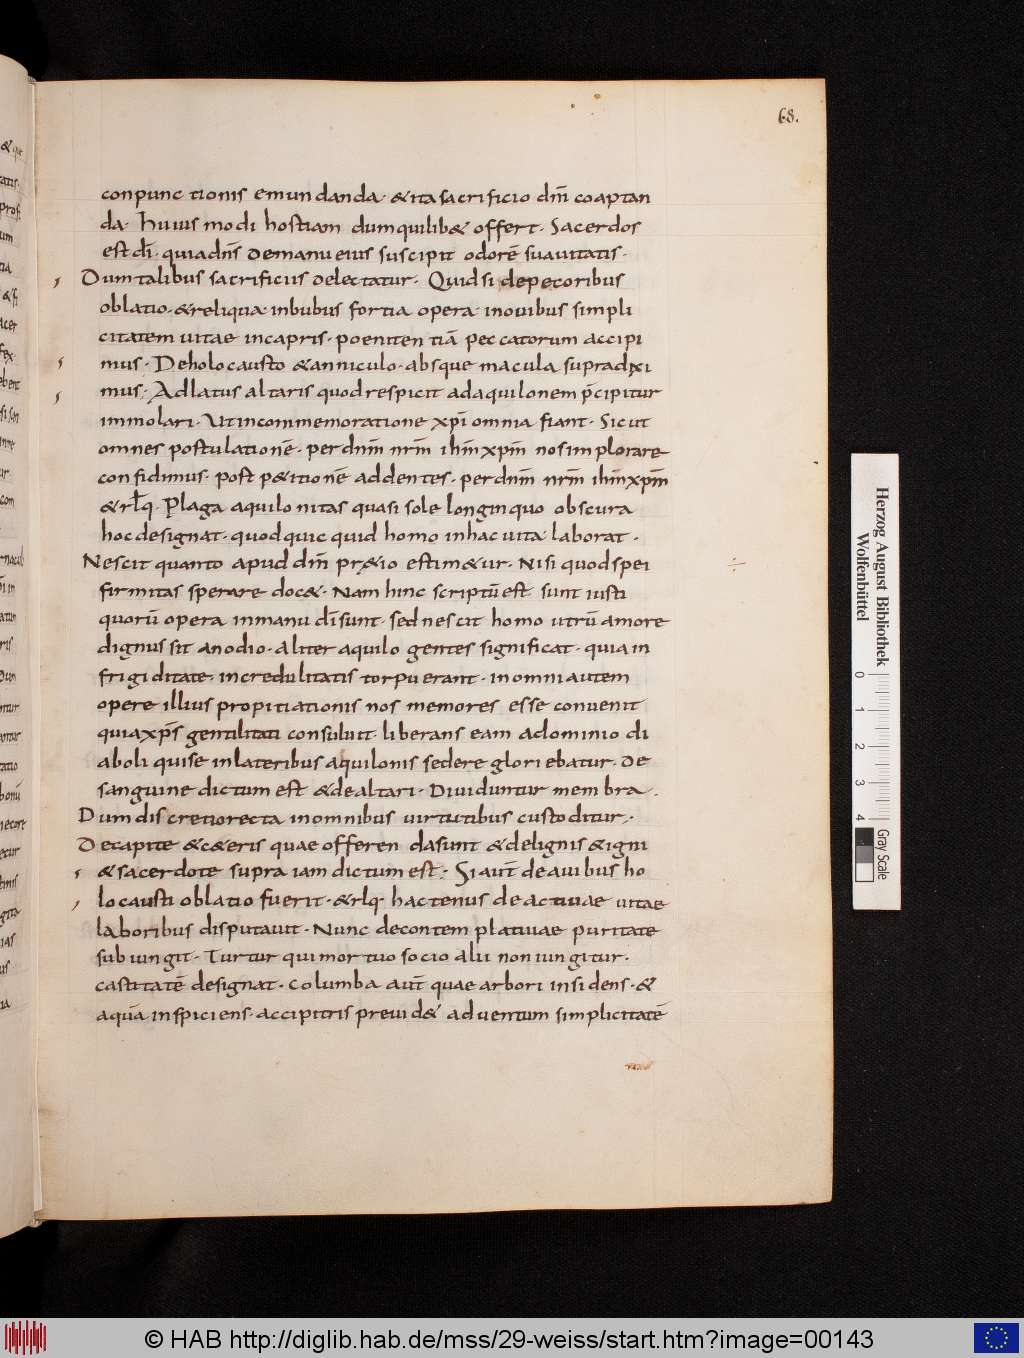 68.
conpunctionis emundanda · & ita sacrificio dm̄ coaptan
da · Huius modi hostiam dum quilib& offert · Sacerdos
est dī · quia dn̄s de manu eius suscipit odorē suauitatis ·
Dum talibus sacrificiis delectatur · Quid si de pecoribus
oblatio · & reliqua in bubus fortia opera in ouibus simpli
citatem uitae in capris · poenitentiā peccatorum accipi
mus · De holocausto & anniculo · absque macula supra dixi
mus ; Ad latus altaris quod respicit ad aquilonem p̄cipitur
immolari · Ut in commemoratione xp̄i omnia fiant · Sicut
omnes postulationē · per dnm̄ nr̄m ihm̄ xpm̄ nos implorare
confidimus · post p&itionē addentes · per dnm̄ nr̄m ihm̄ xpm̄
& rl̄q · Plaga aquilonitas quasi sole longinquo obscura
hoc designat · quod quicquid homo in hac uita laborat ·
Nescit quanto apud dm̄ pr&io estim&ur · Nisi quod spei
firmitas sperare doc& · Nam hinc scriptū est sunt iusti
quorū opera in manu dī sunt · sed nescit homo utrū amore
dignus sit an odio · Aliter aquilo gentes significat · quia in
frigiditate · incredulitatis torpuerant · in omni autem
opere illius propitiationis nos memores esse conuenit
quia xp̄s gentilitati consuluit · liberans eam a dominio di
aboli qui se in lateribus aquilonis sedere gloriebatur · De
sanguine dictum est & de altari · Diuiduntur membra .
Dum discretio recta in omnibus uirtutibus custoditur ;
De capite & c&eris quae offerenda sunt & de lignis & igni
& sacerdote supra iam dictum est ; Si aut̄ de auibus ho
locausti oblatio fuerit · & rlq · hactenus de actiuae uitae
laboribus disputauit · Nunc de contemplatiuae puritate
subiungit · Turtur qui mortuo socio alii non iungitur ·
castitatē designat · columba aut̄ quae arbori insidens · &
aquā inspiciens · accipitris preuid& aduentum simplicitatē
Herzog August Bibliothek
Wolfenbüttel
0 1 2 3 4
Gray Scale
© HAB http://diglib.hab.de/mss/29-weiss/start.htm?image=00143